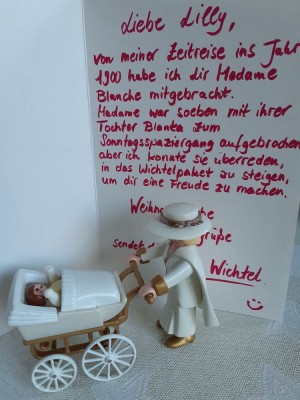 Liebe Lilly,
von meiner Zeitreise ins Jahr
1900 habe ich dir Madame
Blanche mitgebracht.
Madame war soeben mit ihrer
Tochter Blanka zum
Sonntagsspaziergang aufgebrochen
aber ich konnte sie überreden,
in das Wichtelpaket zu steigen,
um dir eine Freude zu machen.
sendet
Wichtel